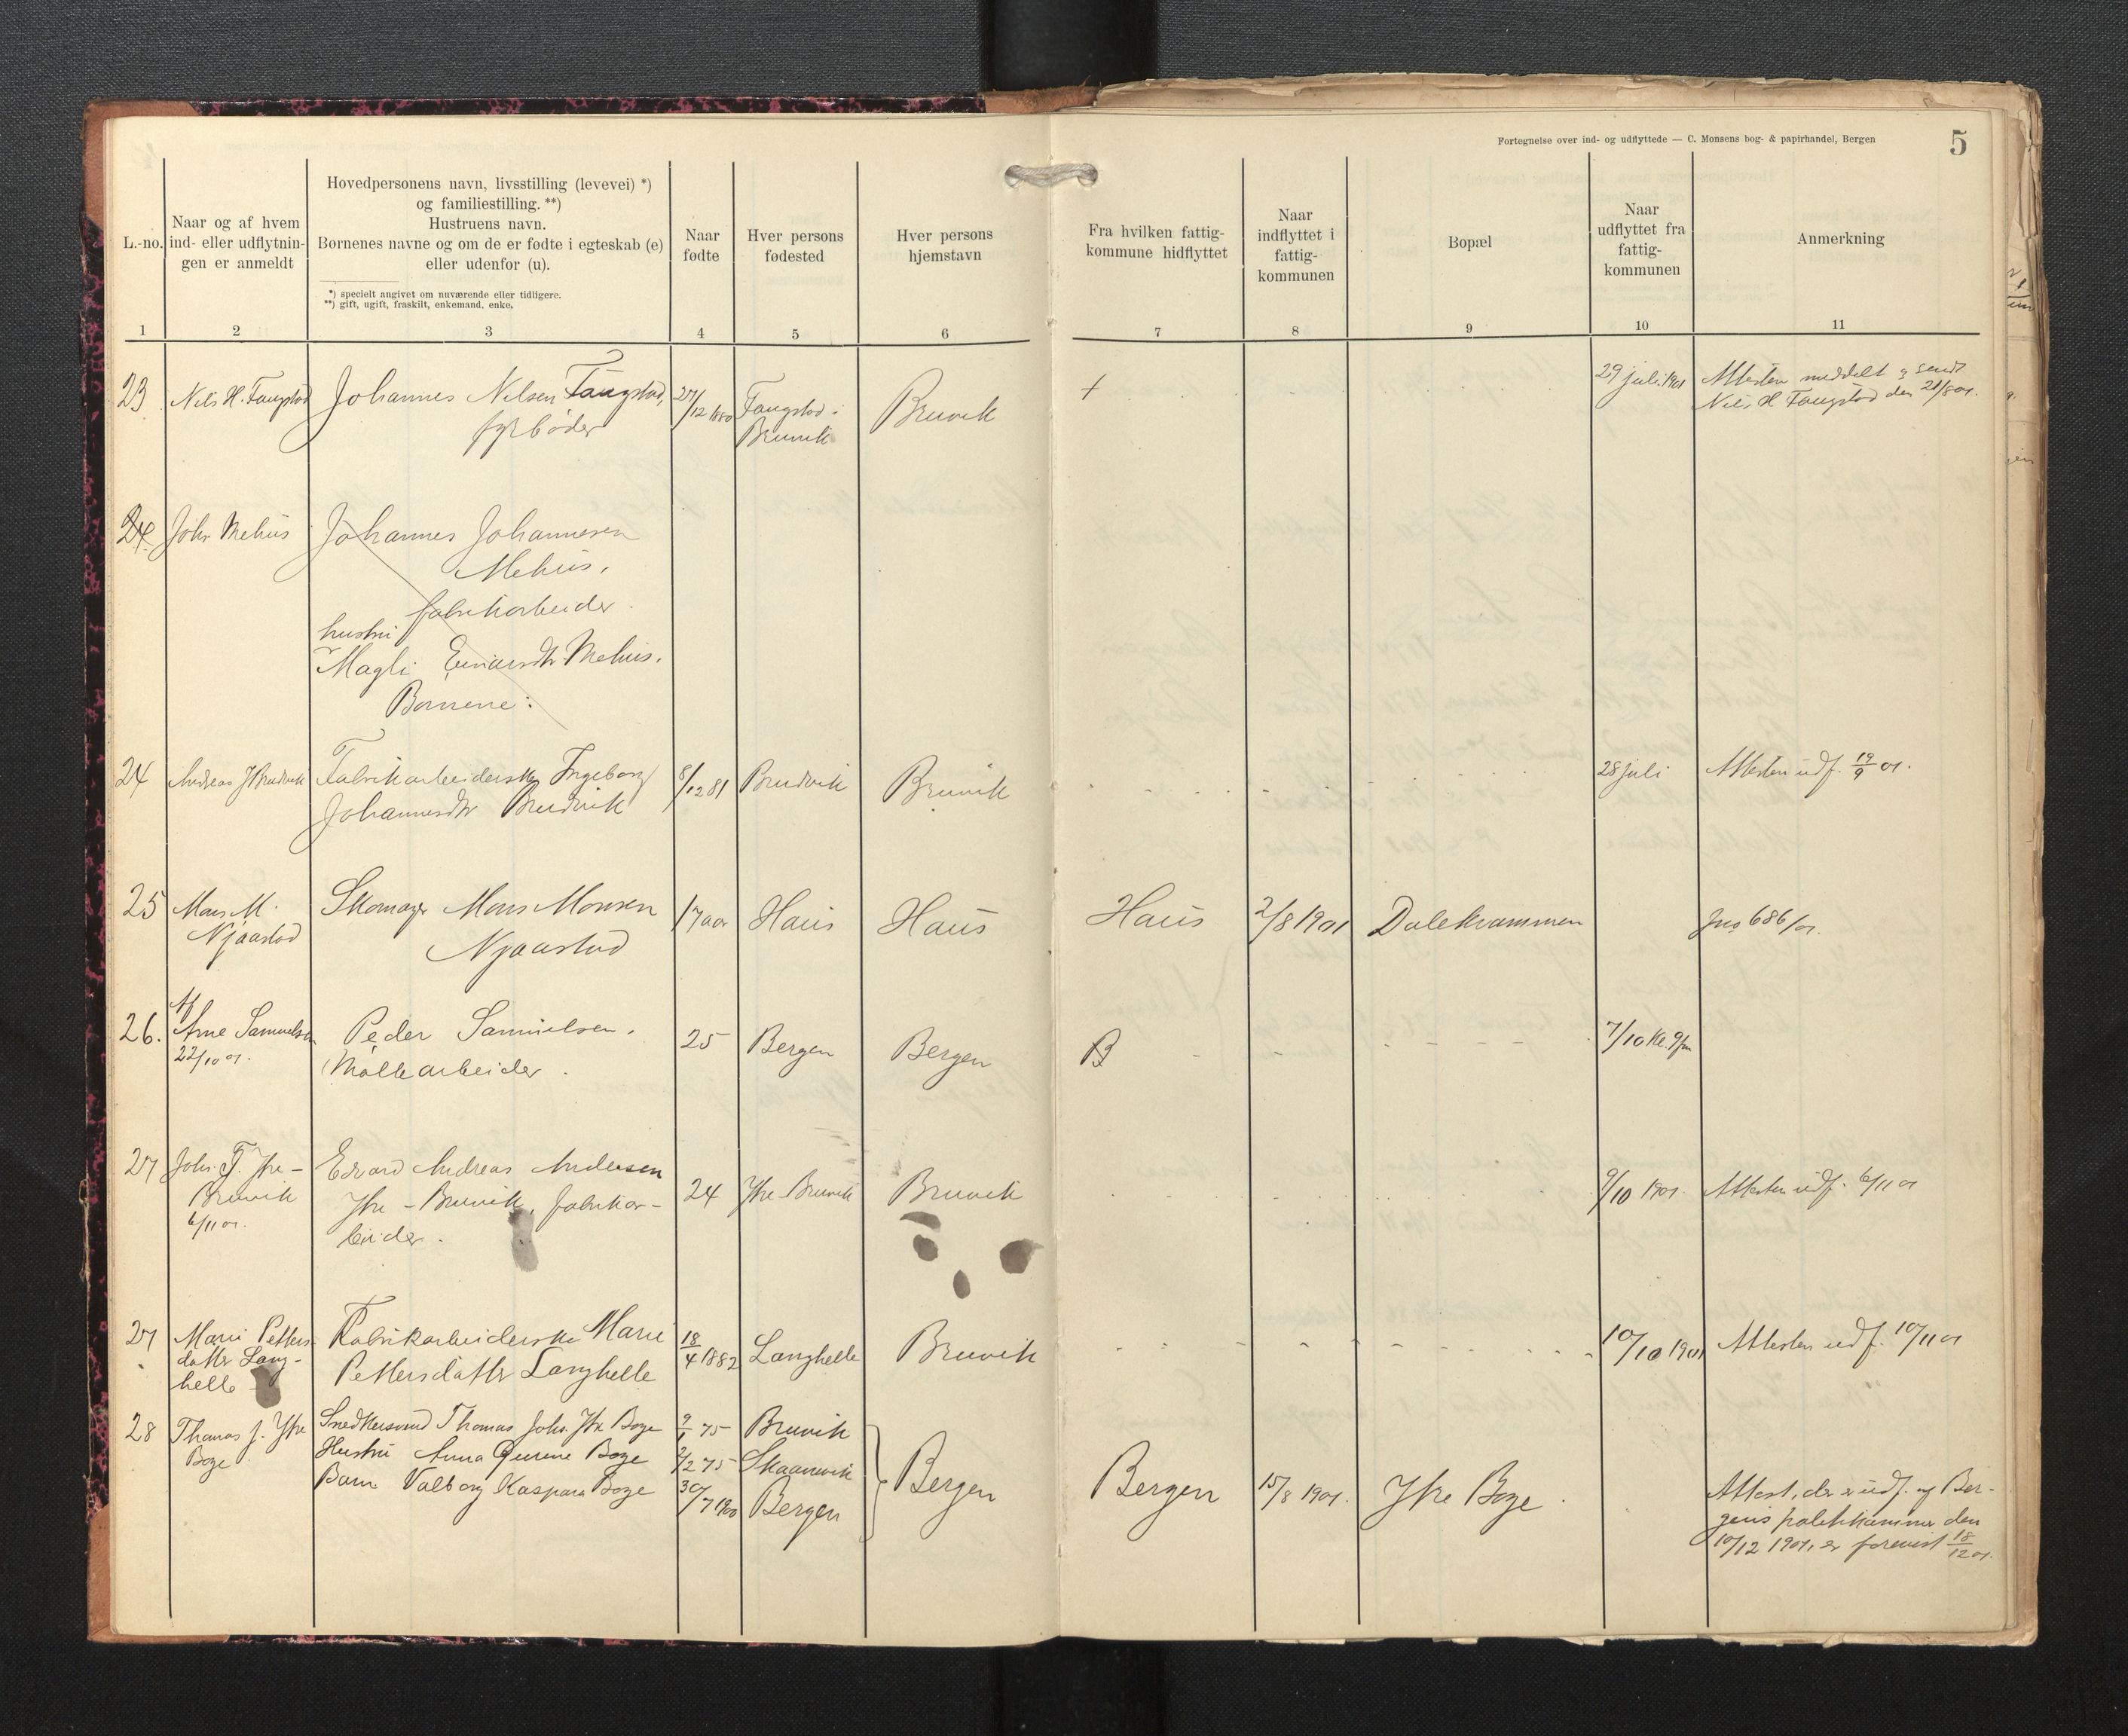 Fortegnelse over ind- og udflyttede — C. Monsens bog- & papirhandel, Bergen
5
L.-no.
Naar og af hvem
ind- eller udflytnin-
gen er anmeldt
Hovedpersonens navn, livsstilling (levevei) *)
og familiestilling. **)
Hustruens navn.
Børnenes navne og om de er fødte i egteskab (e)
eller udenfor (u).
*) specielt angivet om nuværende eller tidligere.
**) gift, ugift, fraskilt, enkemand, enke.
Naar
fødte
Hver persons
fødested
Hver persons
hjemstavn
Fra hvilken fattig-
kommune hidflyttet
Naar
indflyttet i
fattig-
kommunen
Bopæl
Naar
udflyttet fra
fattig-
kommunen
Anmerkning
1 2 3 4 5 6 7 8 9 10 11
23
Nils H. Fangstad
Johannes Nilsen Fangstad,
fyrbøder
27/12 1880
Fangstad i
Bruvik
Bruvik
+
29 juli 1901
Attesten meddelt og sendt
Nils H Fangstad den 21/8 01.
24.
Johs Mehus
Johannes Johannesen
Mehus,
fabrikarbeider.
hustru
Magli Mehus.
Børnene:
24
Andreas J Brudvik
Fabrikarbeiderske Ingeborg
Johannesdtr Brudvik
8/12 81
Brudvik
Bruvik
28 juli
Attesten udf. 19/9 01.
25
Mons M.
Njaastad
Skomager Mons Monsen
Njaastad
17 aar
Haus
Haus
Haus
2/8 1901
Dalekvammen
Jno 686/01.
26.
Af
Arne Samuelsen
22/10 01.
Peder Samuelsen.
Møllearbeider.
25
Bergen
Bergen
B
7/10 kl. 9 fm
27
Johs. J. Ytre-
Bruvik
6/11 01.
Edvard Andreas Andersen
Ytre-Bruvik, fabrikar-
beider.
24
Ytre Bruvik
Bruvik
9/10 1901.
Attesten udf. 6/11 01
27
Marie Petters-
datter Lang-
helle
Fabrikarbeiderske Marie
Pettersdatter Langhelle
18/4 1882
Langhelle
Bruvik
10/10 1901
Attesten udf. 10/11 01
28
Thomas J. Ytre
Boge
Snedkersvend Thomas Johs. Ytre Boge
Hustru Anna Gurine Boge
Barn Valborg Kaspara Boge
9/1 75
2/2 75
30/7 1900
Bruvik
Skaanevik
Bergen
Bergen
Bergen
15/8 1901.
Ytre Boge.
Attest, der er udf. af Ber-
gens politikammer den
10/12 1901, er forevist 18/12 01.